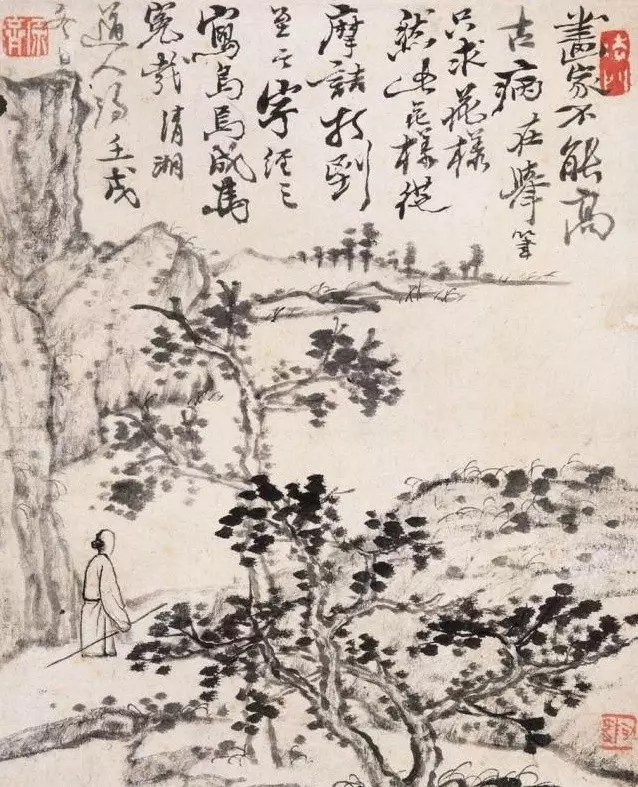 畫家不能高
古病在舉筆
只求花樣
然此花樣從
摩詰打到
至今字經三
寫烏焉成馬
冤哉清湘
道人濟壬戌
冬日